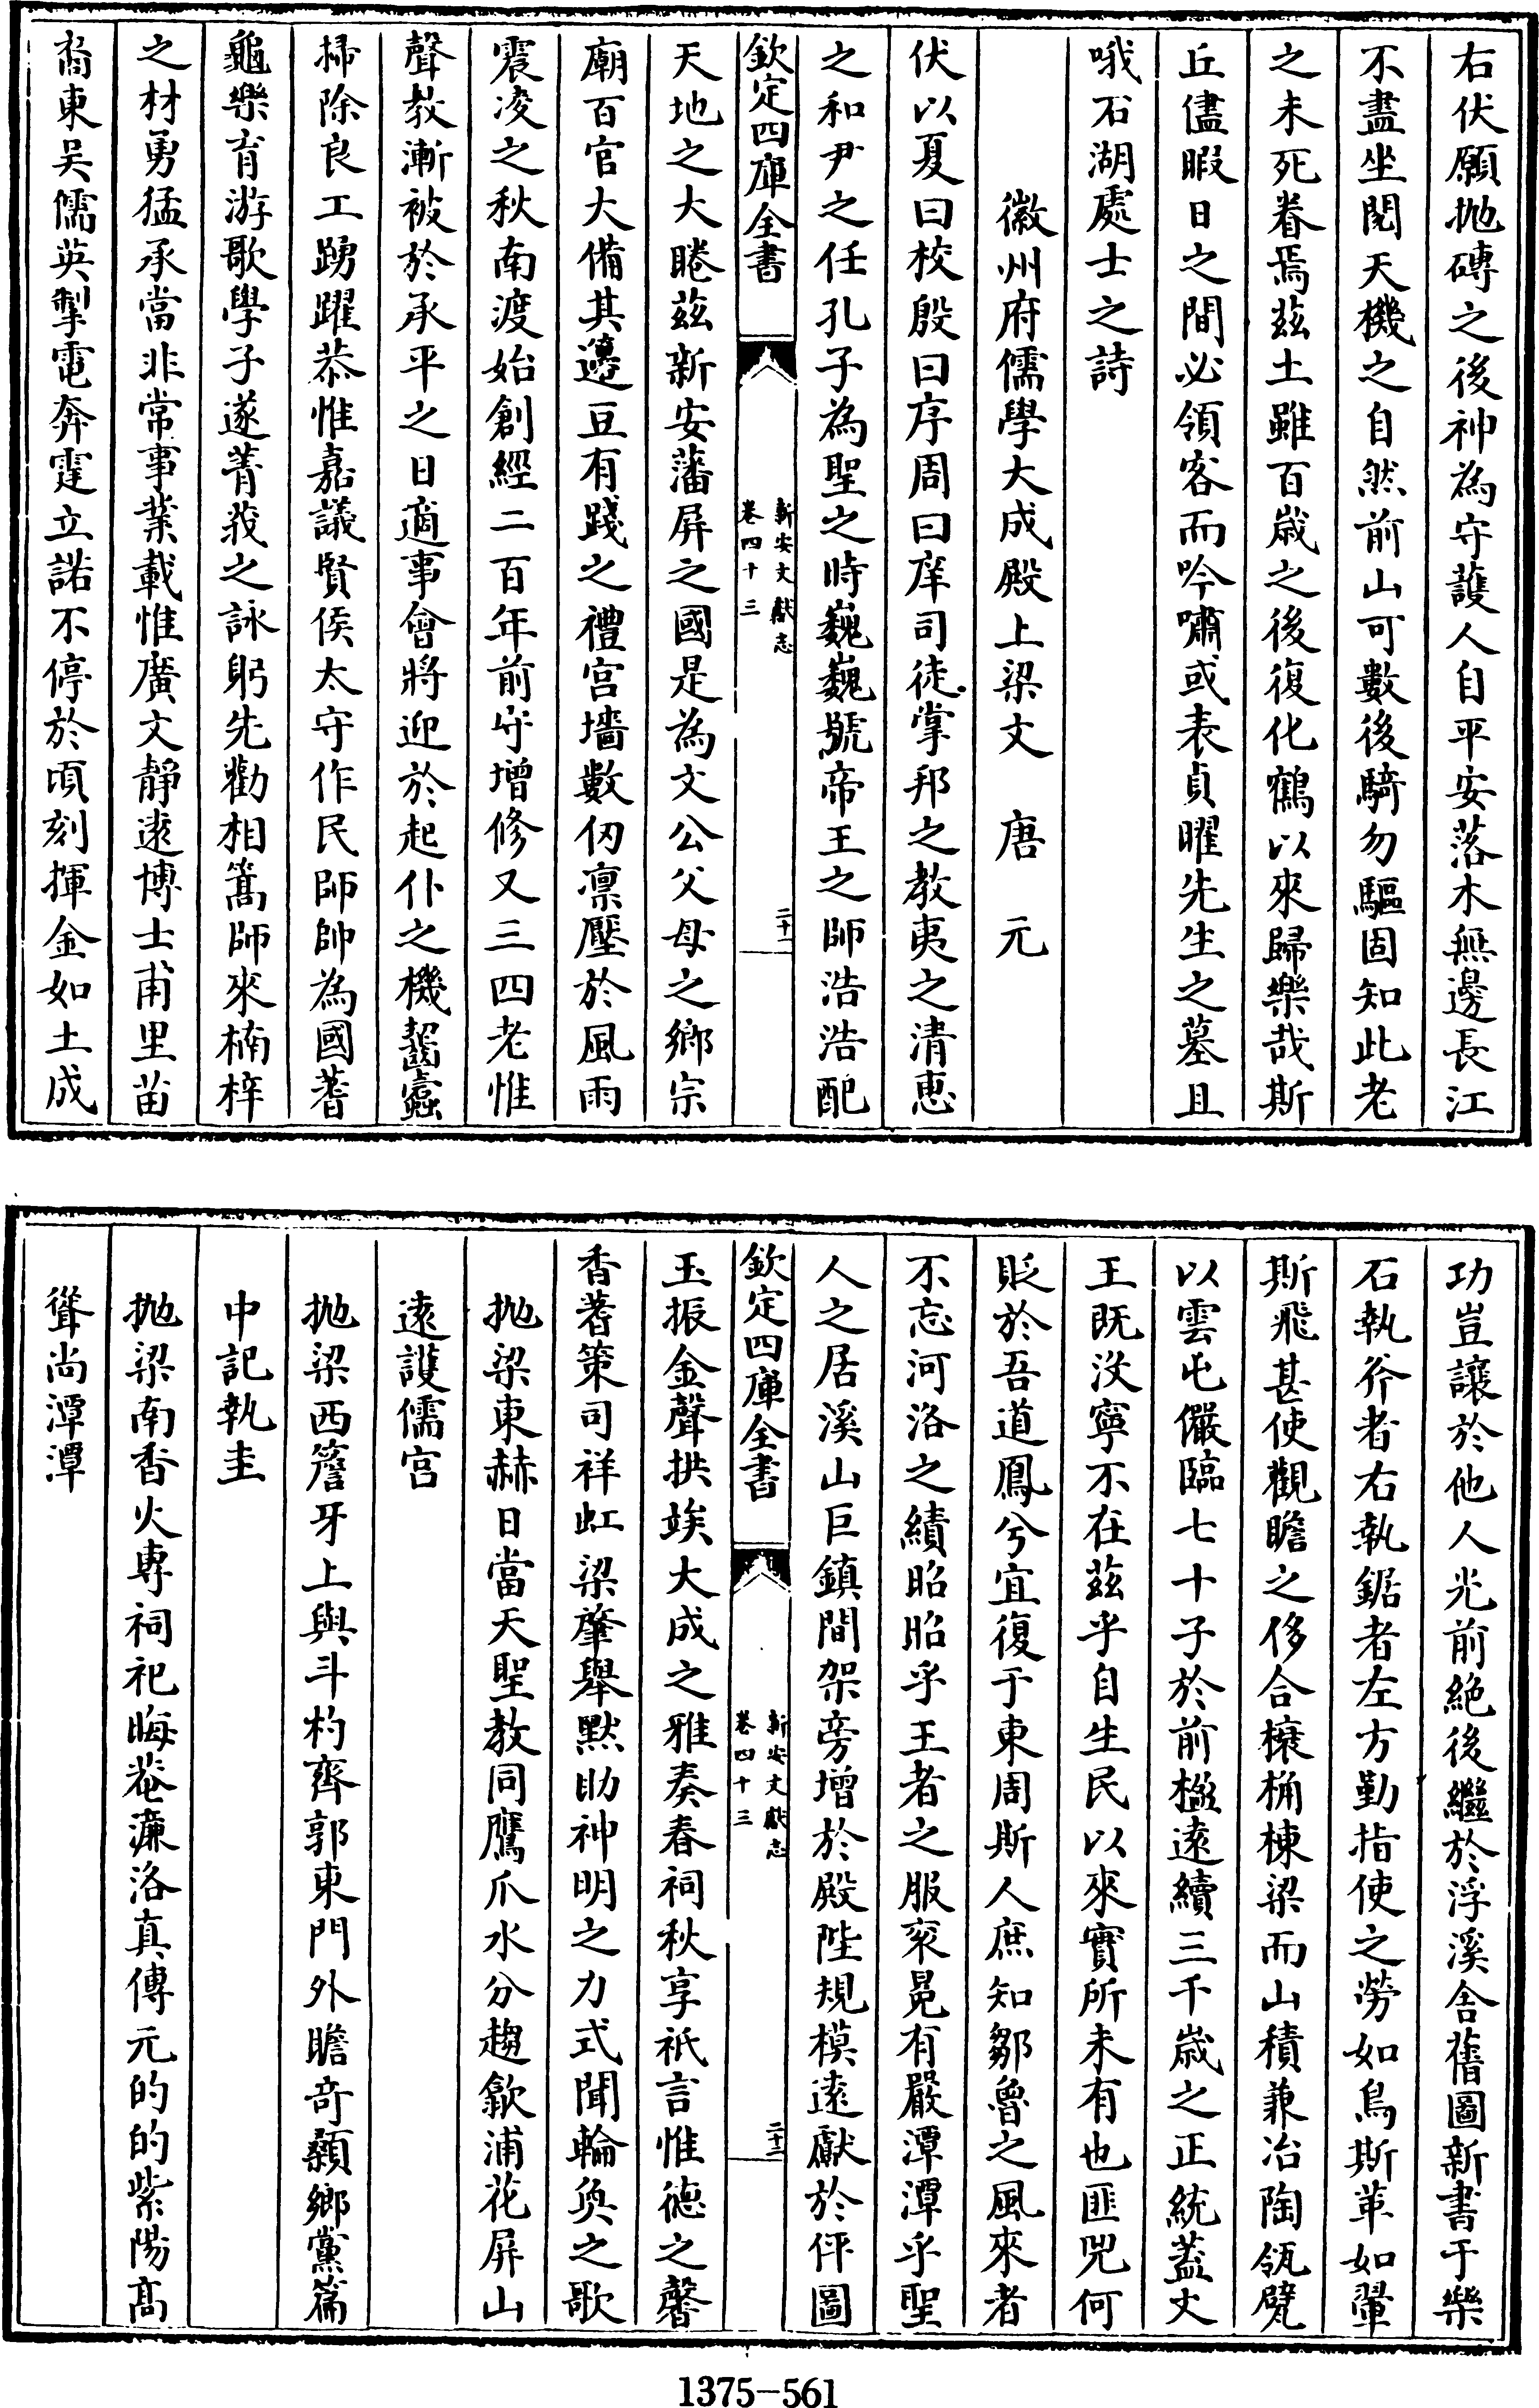 右伏願拋磚之後神為守護人自平安落木無邊長江
不盡坐閱天機之自然前山可數後騎勿驅固知此老
之未死眷焉茲土雖百歲之後復化鶴以來歸樂哉斯
丘儘暇日之間必領客而吟嘯或表貞曜先生之墓且
哦石湖處士之詩
徽州府儒學大成殿上梁文 唐元
伏以夏曰校殷曰序周曰庠司徒掌邦之教夷之清惠
之和尹之任孔子為聖之時巍巍號帝王之師浩浩配
欽定四庫全書
新安文獻志
卷四十三
二十一
天地之大睠茲新安藩屏之國是為文公父母之鄉宗
廟百官大備其籩豆有踐之禮宫墻數仞凛壓於風雨
震凌之秋南渡始創經二百年前守增修又三四老惟
聲教漸被於承平之日適事會將迎於起仆之機齾蠧
掃除良工踴躍恭惟嘉議賢侯太守作民師帥為國蓍
龜樂育游歌學子遂菁莪之詠躬先勸相篙師來楠梓
之材勇猛承當非常事業載惟廣文靜遠博士甫里苗
裔東吴儒英掣電奔霆立諾不停於頃刻揮金如土成
功豈讓於他人光前絶後繼於浮溪舍舊圖新書于樂
石執斧者右執鋸者左方勤指使之勞如鳥斯革如翬
斯飛甚使觀瞻之侈合榱桷棟梁而山積兼冶陶瓴甓
以雲屯儼臨七十子於前楹遠續三千歲之正統蓋文
王既沒寧不在茲乎自生民以來實所未有也匪兕何
貶於吾道鳳兮宜復于東周斯人庶知鄒魯之風來者
不忘河洛之績昭昭乎王者之服衮冕有嚴潭潭乎聖
人之居溪山巨鎮間架旁增於殿陛規模遠獻於伻圖
欽定四庫全書
新安文獻志
卷四十三
二十二
玉振金聲拱竢大成之雅奏春祠秋享祇言惟德之馨
香蓍策司祥虹梁肇舉默助神明之力式聞輪奐之歌
拋梁東赫日當天聖教同鷹爪水分趨歙浦花屏山
遠護儒宫
拋梁西簷牙上與斗杓齊郭東門外瞻奇顙鄉黨篇
中記執圭
拋梁南香火專祠祀晦菴濂洛真傳元的的紫陽高
聳尚潭潭
1375-561